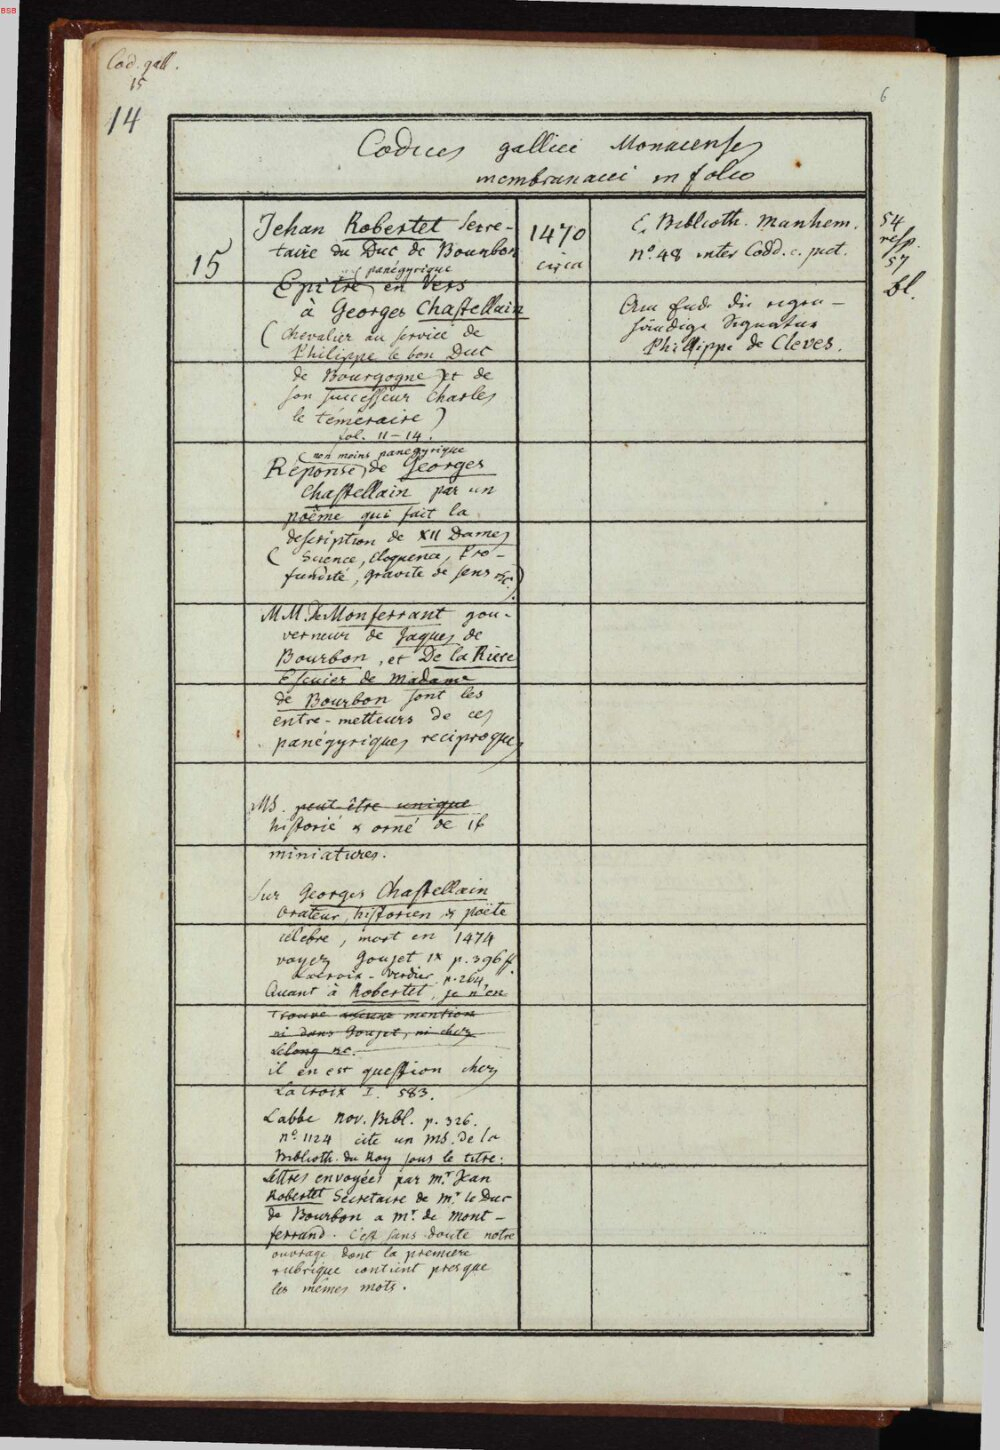 BSB
Cod. gall.
15
14
6
Codices gallici Monacenses
membranacei in folio
15
Jehan Robertet Secre-
taire du Duc de Bourbon
(panégyrique
Epitre) en Vers
à Georges Chastellain
(Chevalier au service de
Philippe le bon Duc
de Bourgogne) et de
son successeur Charles
le téméraire)
fol. 11-14.
(non moins panegyrique
Réponse) de Georges
Chastellain par un
poëme qui fait la
description de XII Dames
(Science, Eloquence, Pro-
fundité, gravité de sens &c.)
MM. De Monferrant gou-
verneur de Jaques de
Bourbon, et De la Riere
Escuier de Madame
de Bourbon sont les
entre-metteurs de ces
panégyriques reciproques
MS. peut-être unique
historié & orné de 15
miniatures.
Sur Georges Chastellain
Orateur, historien & poëte
célèbre, mort en 1474
voyez Goujet IX p. 396 f.
Lacroix-Verdier p. 264.
Quant à Robertet, je n'en
trouve aucune mention
ni dans Goujet, ni chez
Lelong &c.
il en est question chez
La Croix I. 583.
Labbe nov. Bibl. p. 326.
nº. 1124 cite un MS. de la
Biblioth. du Roy sous le titre:
Lettres envoyées par mr. Jean
Robertet Secretaire de mr. le Duc
de Bourbon a mr. de Mont-
ferrand. C'est sans doute notre
ouvrage dont la premiere
rubrique contient presque
les mêmes mots.
1470
circa
E Biblioth. Manhem.
nº. 48 inter Codd. c. pict.
Am Ende die eigen-
händige Signatur
Phillippe de Cleves.
54
resp.
57
bl.